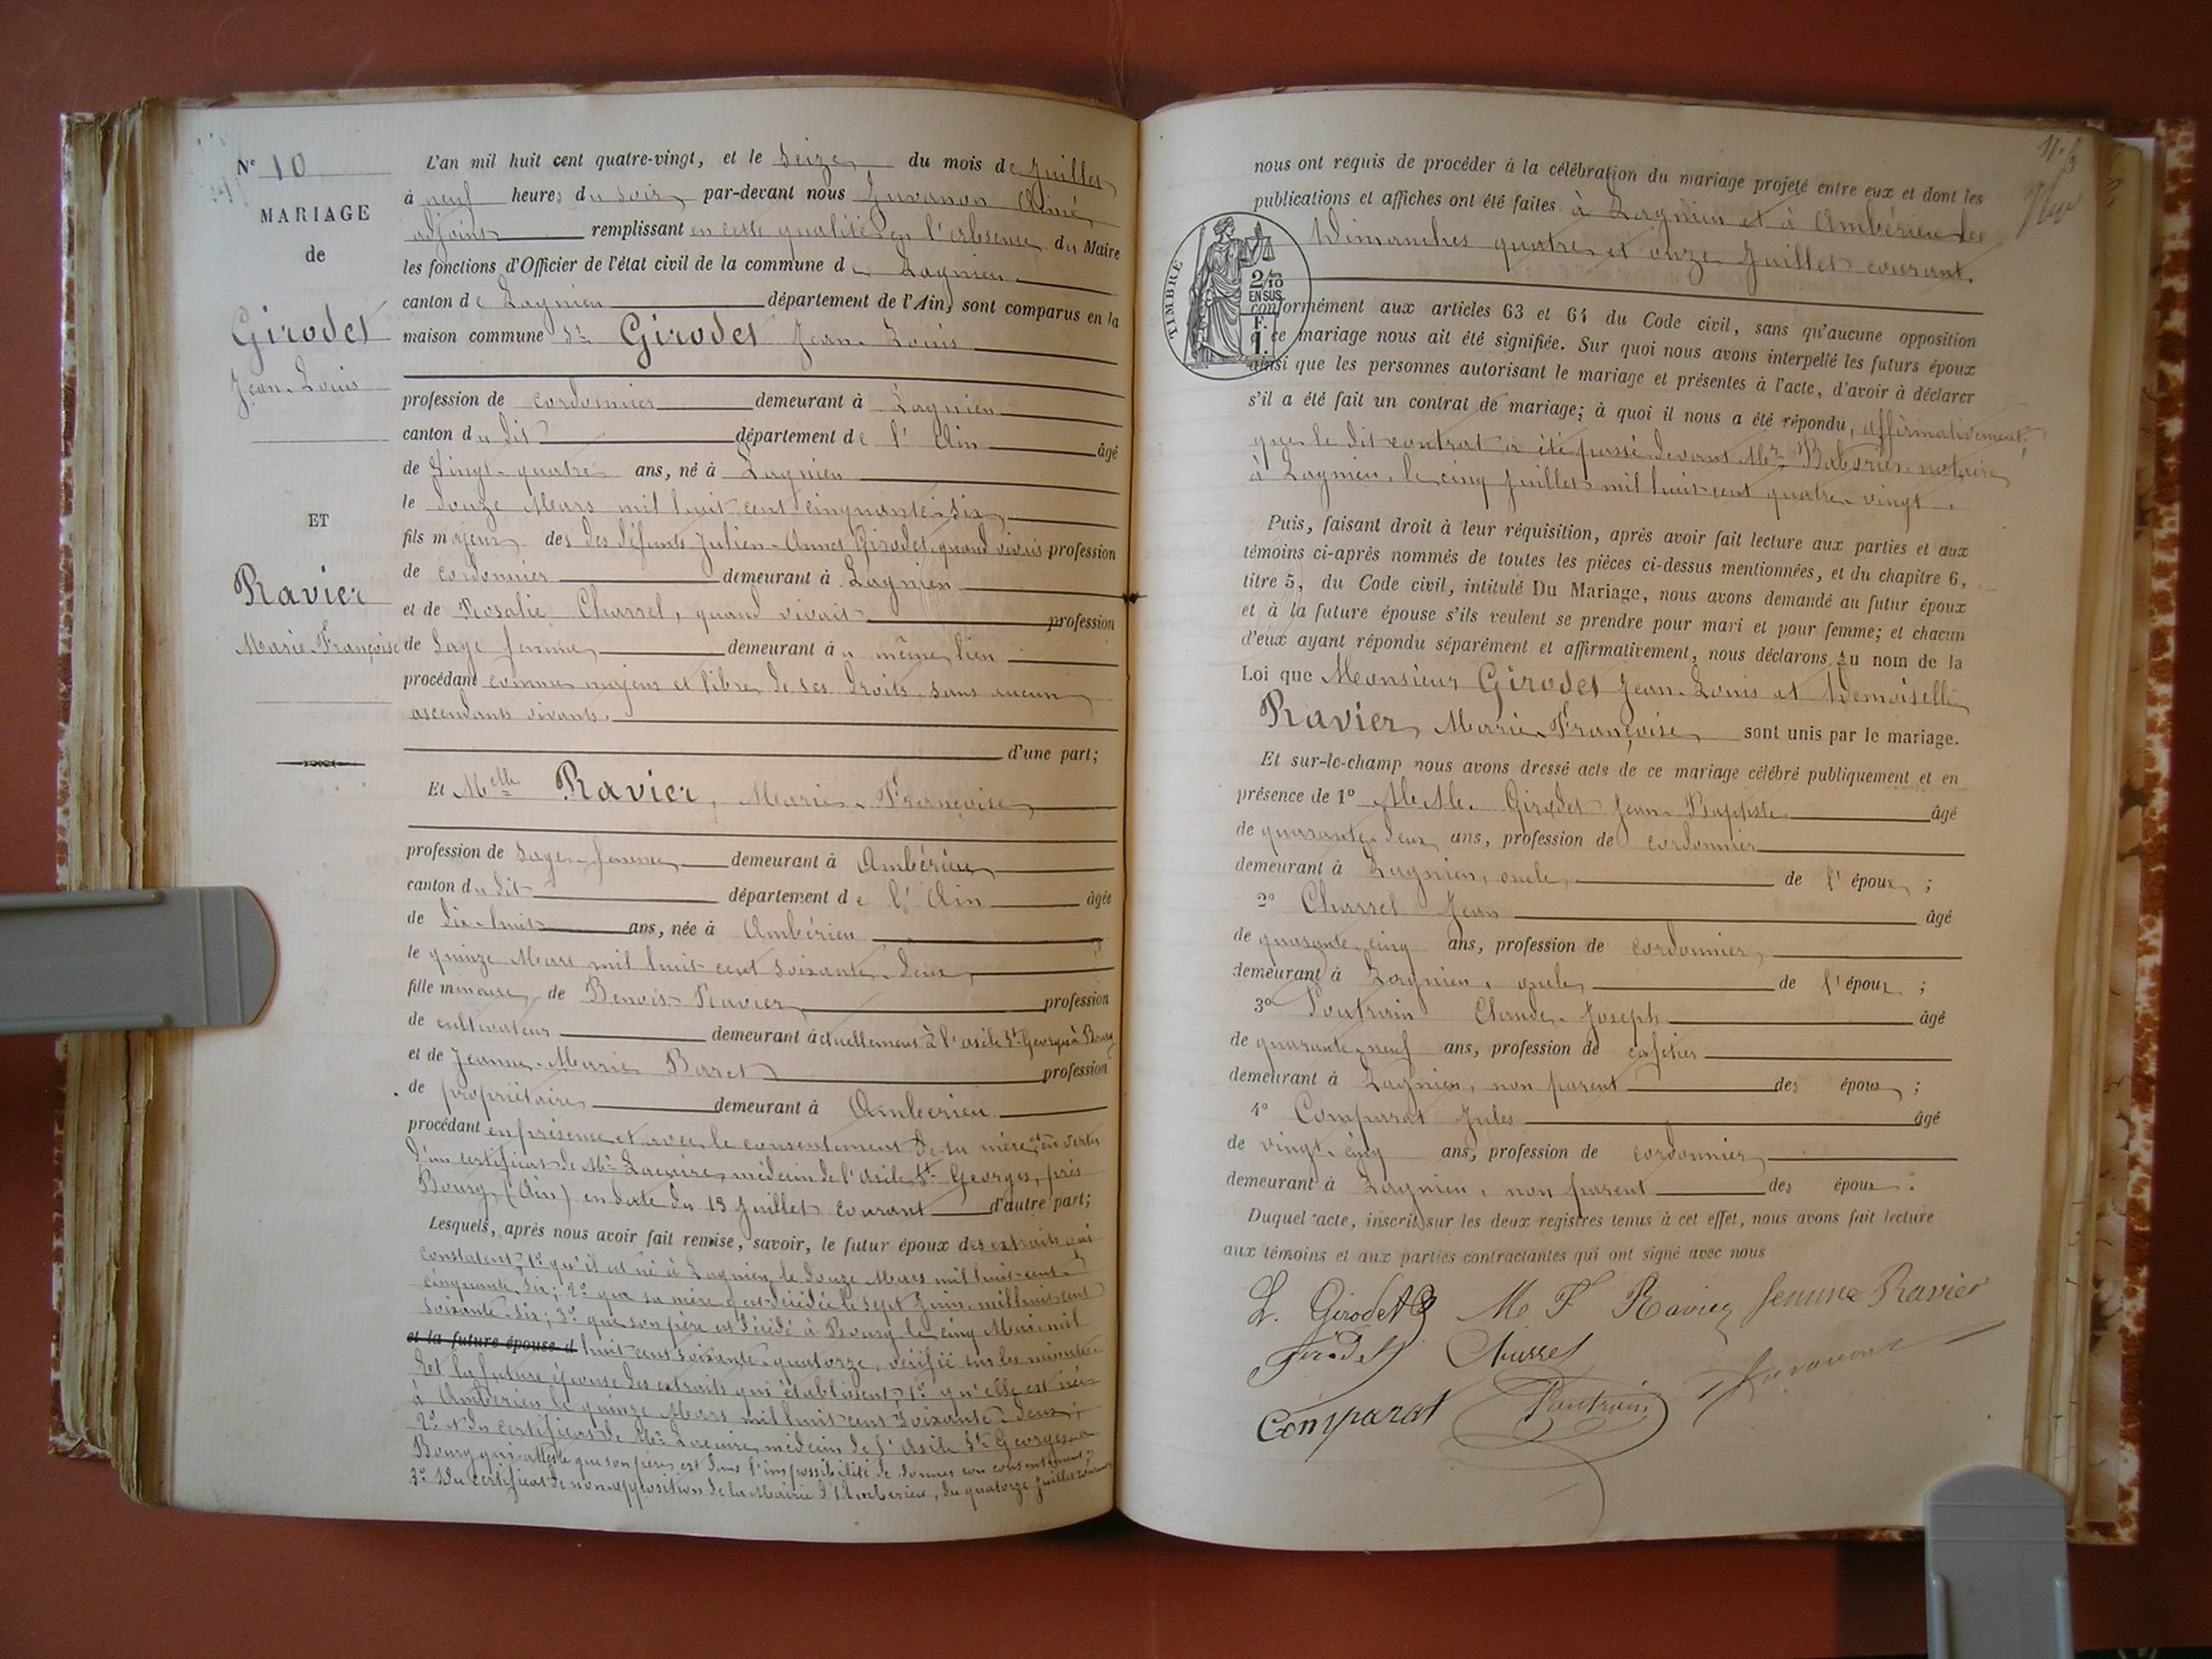 N° 10
MARIAGE
de
Girodet
Jean-Louis
ET
Ravier
Marie Françoise
L'an mil huit cent quatre-vingt, et le seize du mois de Juillet
à neuf heures du soir par-devant nous Juvanon Aimé
adjoint remplissant en cette qualité en l'absence du Maire
les fonctions d'Officier de l'état civil de la commune de Lagnieu
canton de Lagnieu département de l'Ain, sont comparus en la
maison commune Sr Girodet Jean-Louis
profession de cordonnier demeurant à Lagnieu
canton du dit département de l'Ain âgé
de Vingt-quatre ans, né à Lagnieu
le douze Mars mil huit cent cinquante-six
fils majeur des des défunts Julien-Annet Girodet quand vivait profession
de cordonnier demeurant à Lagnieu
et de Rosalie Charrel, quand vivait profession
de Sage femme demeurant au même lieu
procédant comme majeur et libre de ses droits, sans aucun
ascendants vivants.
d'une part;
Et Melle Ravier, Marie-Françoise
profession de sage-femme demeurant à Ambérieu
canton du dit département de l'Ain âgée
de dix-huit ans, née à Ambérieu
le quinze Mars mil huit cent soixante-deux
fille mineure de Benoit Ravier profession
de cultivateur demeurant actuellement à l'asile St Georges à Bourg
et de Jeanne-Marie Barret profession
de propriétaire demeurant à Amberieu
procédant en présence et avec le consentement de sa mère et en vertu
d'un certificat de Mr Lacuire, médecin de l'asile St Georges, près
Bourg, (Ain) en date du 13 Juillet courant d'autre part;
Lesquels, après nous avoir fait remise, savoir, le futur époux des extraits qui
constatent, 1° qu'il est né à Lagnieu le douze Mars mil huit cent
cinquante-six; 2° que sa mère y est décédée le sept Juin mil huit cent
soixante-six; 3° que son père est décédé à Bourg le cinq Mai mil
et la future épouse d huit cent soixante-quatorze, vérifié sur les minutes
Et la future épouse des extraits qui établissent, 1° qu'elle est née
à Ambérieu le quinze Mars mil huit cent soixante-deux;
2° et du certificat de Mr Lacuire, médecin de l'asile St Georges à
Bourg qui atteste que son père est dans l'impossibilité de donner son consentement
3° Du certificat de non opposition de la Mairie d'Amberieu, du quatorze Juillet courant
nous ont requis de procéder à la célébration du mariage projeté entre eux et dont les
publications et affiches ont été faites à Lagnieu et à Ambérieu les
Dimanches quatre et onze Juillet courant.
TIMBRE
2/10
EN SUS
F.
1.
conformément aux articles 63 et 64 du Code civil, sans qu'aucune opposition
à ce mariage nous ait été signifiée. Sur quoi nous avons interpellé les futurs époux
ainsi que les personnes autorisant le mariage et présentes à l'acte, d'avoir à déclarer
s'il a été fait un contrat de mariage; à quoi il nous a été répondu, affirmativement
que le dit contrat a été passé devant Mr notaire
à Lagnieu, le cinq Juillet mil huit cent quatre-vingt.
Puis, faisant droit à leur réquisition, après avoir fait lecture aux parties et aux
témoins ci-après nommés de toutes les pièces ci-dessus mentionnées, et du chapitre 6,
titre 5, du Code civil, intitulé Du Mariage, nous avons demandé au futur époux
et à la future épouse s'ils veulent se prendre pour mari et pour femme; et chacun
d'eux ayant répondu séparément et affirmativement, nous déclarons Au nom de la
Loi que Monsieur Girodet Jean-Louis et Demoiselle
Ravier Marie-Françoise sont unis par le mariage.
Et sur-le-champ nous avons dressé acte de ce mariage célébré publiquement et en
présence de 1° MM. Girodet Jean Baptiste âgé
de quarante-deux ans, profession de cordonnier
demeurant à Lagnieu, oncle de l'époux;
2° Charrel Jean âgé
de quarante-cinq ans, profession de cordonnier
demeurant à Lagnieu, oncle de l'époux;
3° Poutrain Claude-Joseph âgé
de quarante-neuf ans, profession de cafetier
demeurant à Lagnieu, non parent des époux;
4° Comparat Jules âgé
de vingt-cinq ans, profession de cordonnier
demeurant à Lagnieu, non parent des époux.
Duquel acte, inscrit sur les deux registres tenus à cet effet, nous avons fait lecture
aux témoins et aux parties contractantes qui ont signé avec nous
L. Girodet M F Ravier femme Ravier
Girodet Charrel
Comparat Poutrain Juvanon